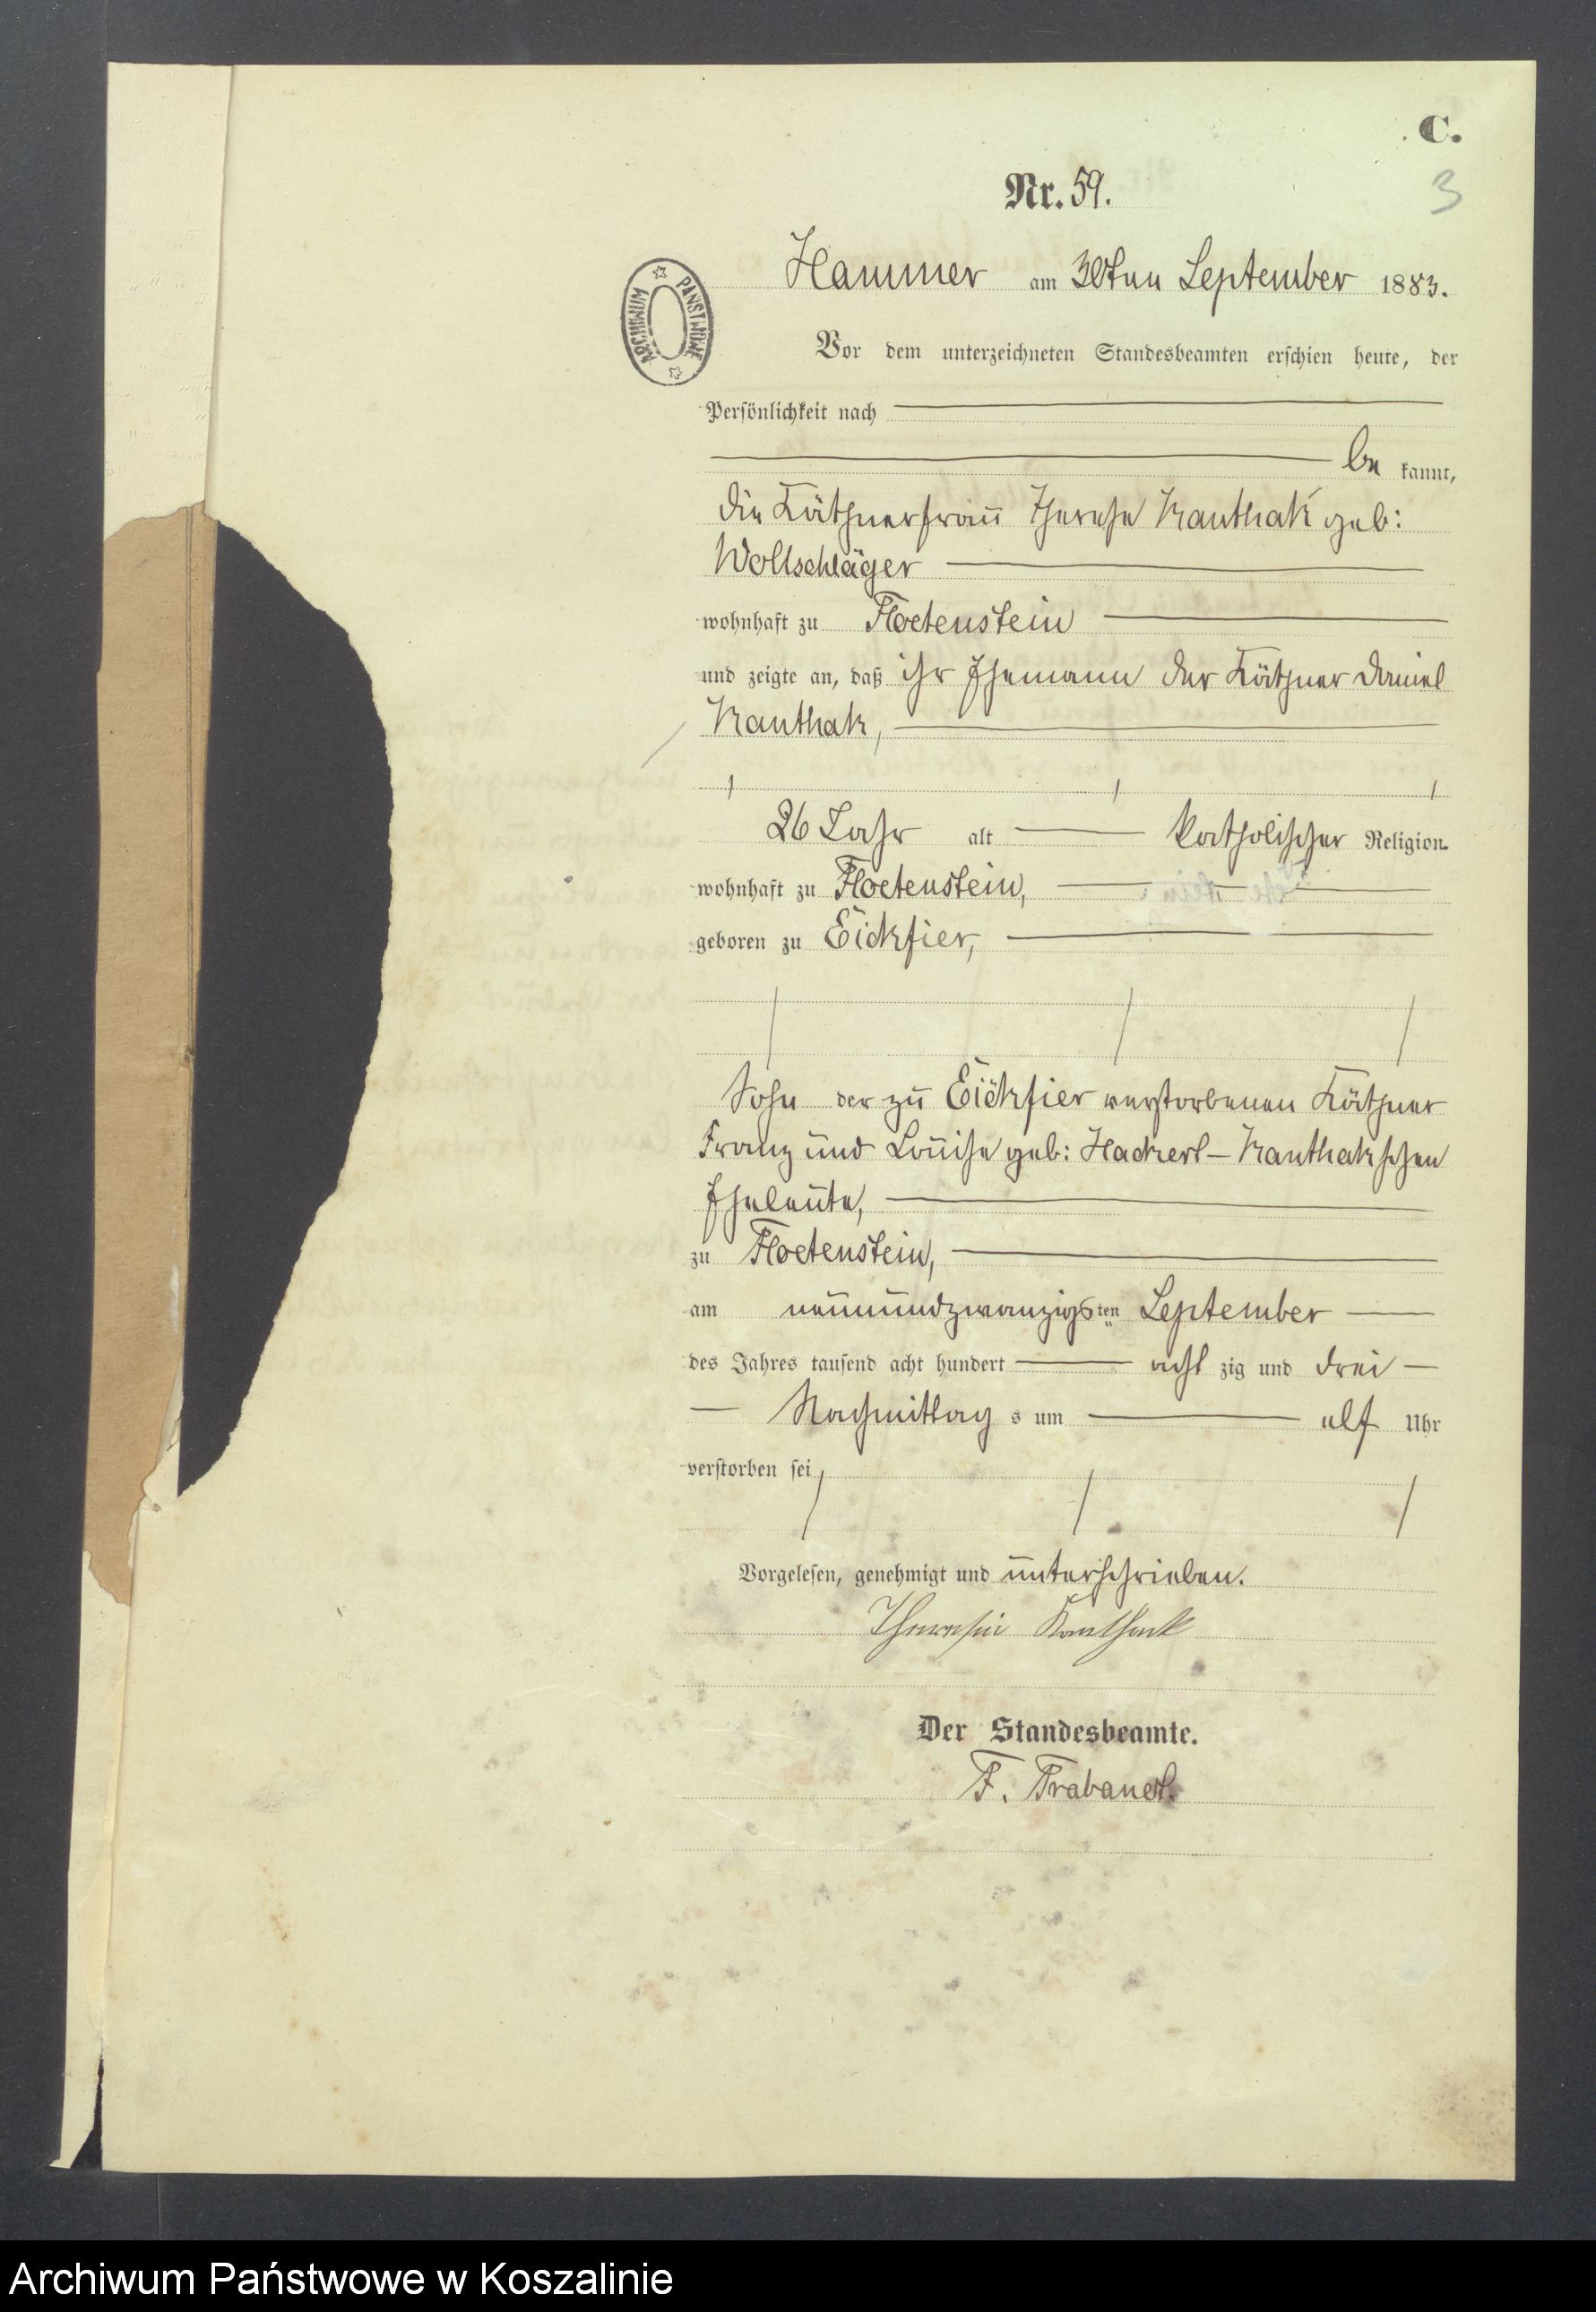 C.
3
Nr. 59.
Hammer am 30ten September 1883.
ARCHIWUM PAŃSTWOWE
Vor dem unterzeichneten Standesbeamten erschien heute, der
Persönlichkeit nach
be kannt,
die Käthnerfrau Therese Kanthak geb:
Wollschläger
wohnhaft zu Floetenstein
und zeigte an, daß ihr Ehemann der Käthner Daniel
Kanthak,
26 Jahr alt katholischer Religion
wohnhaft zu Floetenstein,
geboren zu Eickfier,
Sohn der zu Eickfier verstorbenen Käthner
Franz und Louise geb: Hackert-Kanthakschen
Eheleute,
zu Floetenstein,
am neunundzwanzigsten September
des Jahres tausend acht hundert acht zig und drei
Nachmittag s um elf Uhr
verstorben sei
Vorgelesen, genehmigt und unterschrieben.
Kanthak
Der Standesbeamte.
F.
Archiwum Państwowe w Koszalinie